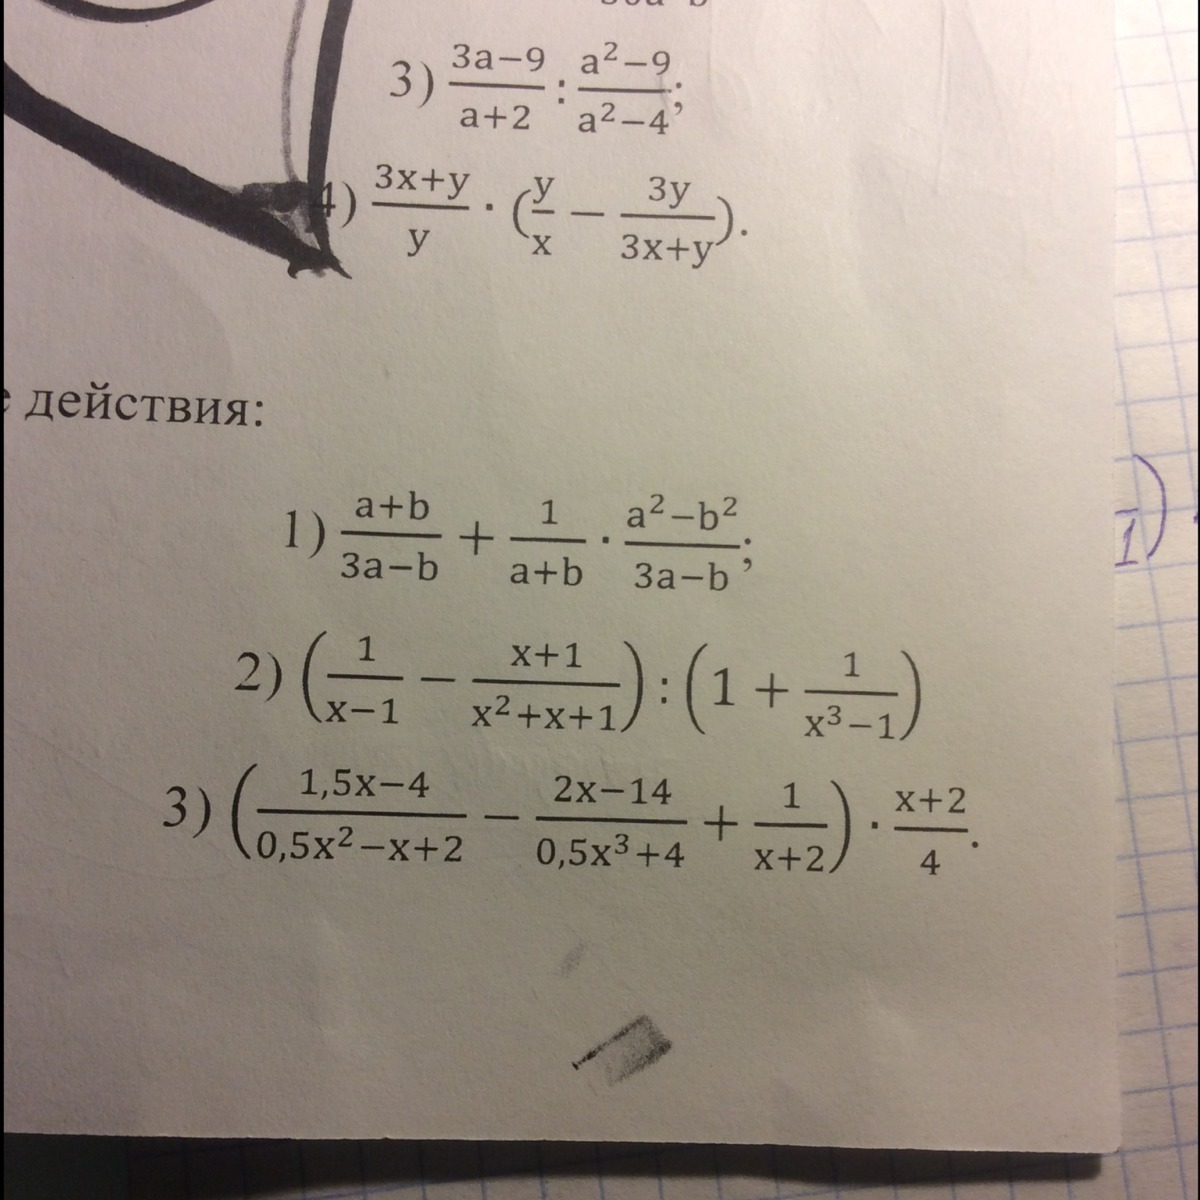 3) (3a−9)/(a+2) : (a²−9)/(a²−4);
4) (3x+y)/y · (y/x − 3y/(3x+y)).
действия:
1) (a+b)/(3a−b) + 1/(a+b) · (a²−b²)/(3a−b);
2) (1/(x−1) − (x+1)/(x²+x+1)) : (1 + 1/(x³−1))
3) ((1,5x−4)/(0,5x²−x+2) − (2x−14)/(0,5x³+4) + 1/(x+2)) · (x+2)/4.